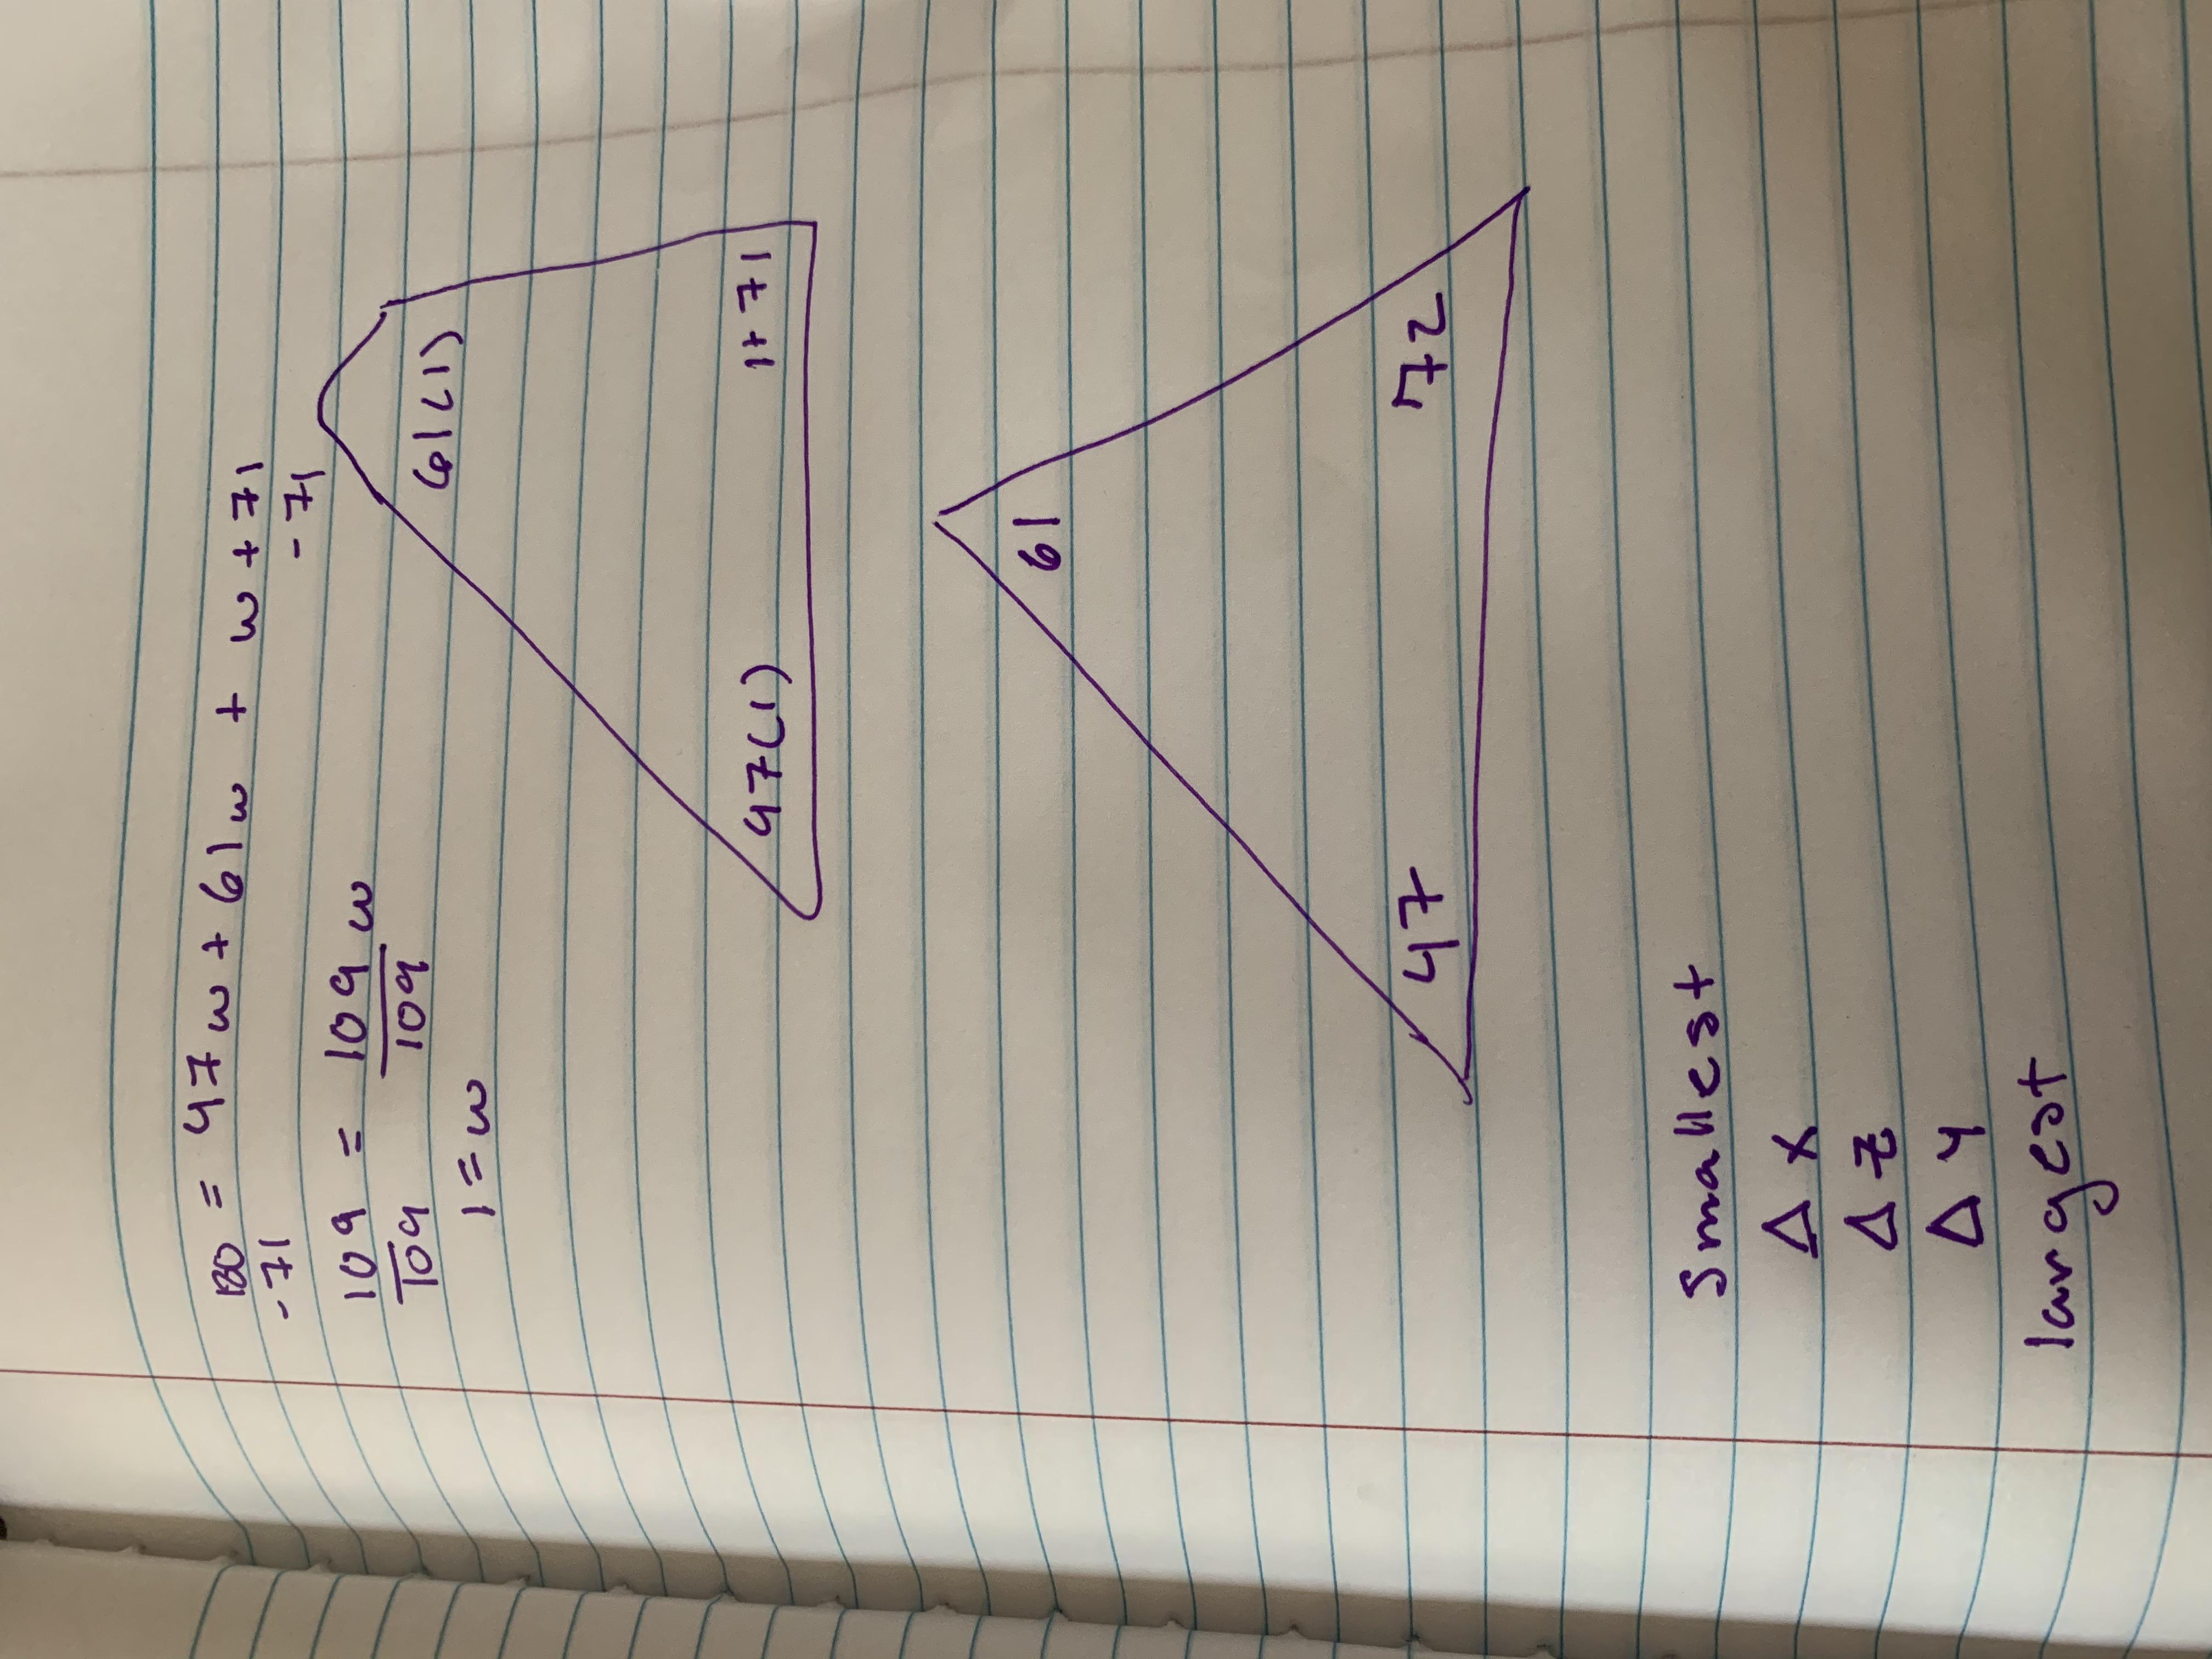 180 = 47w + 61w + w + 71
-71 - 71
109 = 109w
109 109
1 = w
61(1)
47(1) 1+71
61
47 72
Smallest
Δ X
Δ Z
Δ Y
largest